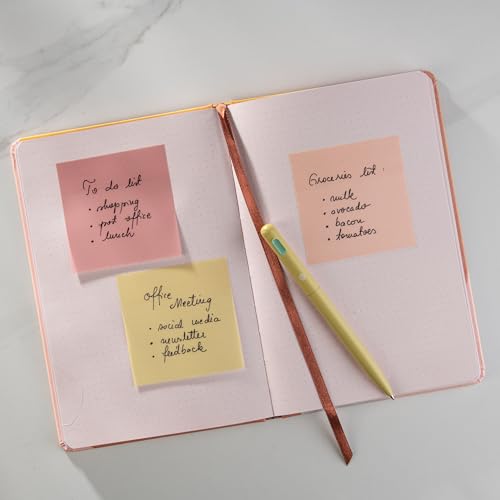 To do list
• shopping
• post office
• lunch
office
Meeting
• social media
• newsletter
• feedback
Groceries list :
• milk
• avocado
• bacon
• tomatoes